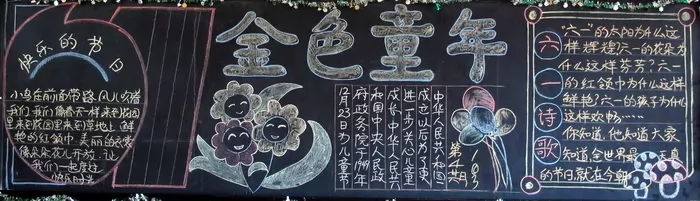 快乐的节日
小鸟在前面带路 风儿吹着
我们 我们像春天一样 来到花园
里来到花园里来到草地上 鲜
艳的红领巾 美丽的衣裳
像朵朵花儿开放 让
我们一起度过
快乐时光
金色童年
中华人民共和国
成立以后为了更
进一步关心儿童
成长中华人民共
和国中央人民政
府政务院于1949年
12月23日为儿童节
第十期
六一诗歌
“六一”的太阳为什么这
样辉煌?六一的花朵为
什么这样芬芳?六一
的红领巾为什么这样
鲜艳?六一的孩子为什么
这样欢畅……
你知道,他知道大家
知道,全世界最
的节日就在今朝